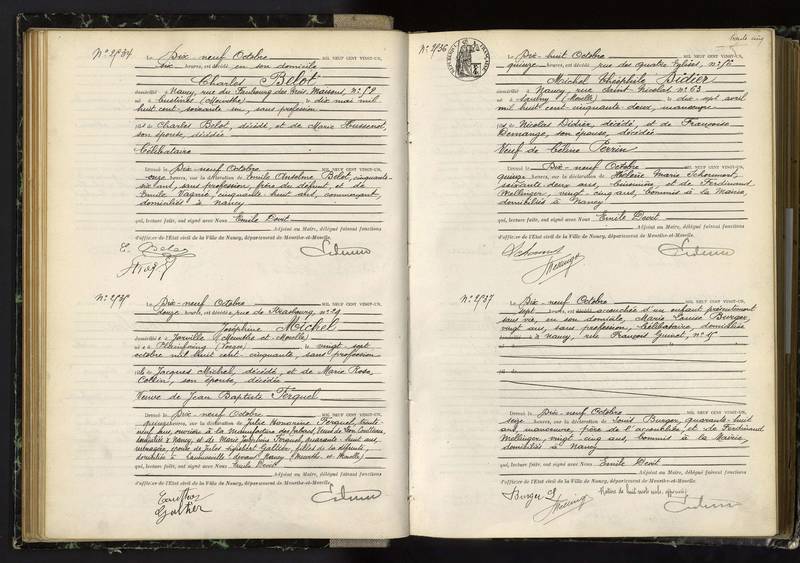 N° 2/34
Le Dix-neuf Octobre MIL NEUF CENT VINGT-UN,
six heures, est décédé en son domicile
Charles Belot
domicilié à Nancy, rue du Faubourg des Trois Maisons, n° 58
né à Custines (Meurthe) le dix mai mil
huit cent soixante un, sans profession
fils de Charles Belot, décédé, et de Marie Hussenot,
son épouse, décédée
Célibataire
Dressé le Dix-neuf Octobre MIL NEUF CENT VINGT-UN,
onze heures, sur la déclaration de Emile Anselme Belot, cinquante-
six ans, sans profession, frère du défunt, et de
Emile Vagné, cinquante huit ans, commerçant,
domiciliés à Nancy
qui, lecture faite, ont signé avec Nous Emile Devit
Adjoint au Maire, délégué faisant fonctions
d'officier de l'Etat civil de la Ville de Nancy, département de Meurthe-et-Moselle.
E. Belot
N° 2/35
Le Dix-neuf Octobre MIL NEUF CENT VINGT-UN,
douze heures, est décédée rue de Strasbourg n° 29
Joséphine Michel
domiciliée à Jarville (Meurthe et Moselle)
née à (Vosges) le vingt sept
octobre mil huit cent cinquante, sans profession
fille de Jacques Michel, décédé, et de Marie Rose
Collin, son épouse, décédée
Veuve de Jean Baptiste Ferquel
Dressé le Dix-neuf Octobre MIL NEUF CENT VINGT-UN,
quinze heures, sur la déclaration de Julie Honorine Ferquel, trente-
neuf ans, ouvrière à la Manufacture des Tabacs, Veuve de Léon
domiciliée à Nancy, et de Marie Ferquel, quarante-huit ans,
ménagère, épouse de Jules Galtier, filles de la défunte,
domiciliée à devant Nancy (Meurthe et Moselle)
qui, lecture faite, ont signé avec Nous Emile Devit
Adjoint au Maire, délégué faisant fonctions
d'officier de l'Etat civil de la Ville de Nancy, département de Meurthe-et-Moselle.
trente cinq
N° 2/36
Le Dix-huit Octobre MIL NEUF CENT VINGT-UN,
quinze heures, est décédé rue des quatre Eglises, n°
Michel Théophile Didier
domicilié à Nancy, rue Saint Nicolas n° 63
né à (Moselle) le dix-sept avril
mil huit cent cinquante deux, manoeuvre
fils de Nicolas Didier, décédé, et de Françoise
Demange, son épouse, décédée
Veuf de Céline Perrin
Dressé le Dix-neuf Octobre MIL NEUF CENT VINGT-UN,
quinze heures, sur la déclaration de Hélène Marie
soixante deux ans, cuisinière, et de Ferdinand
Mellinger, vingt cinq ans, commis à la Mairie,
domiciliés à Nancy
qui, lecture faite, ont signé avec Nous Emile Devit
Adjoint au Maire, délégué faisant fonctions
d'officier de l'Etat civil de la Ville de Nancy, département de Meurthe-et-Moselle.
Mellinger
N° 2/37
Le Dix-neuf Octobre MIL NEUF CENT VINGT-UN,
sept heures, est accouchée d'un enfant présentement
sans vie, en son domicile, Marie Louise Burger,
vingt ans, sans profession, célibataire, domiciliée
à Nancy, rue François Guinet, n° 15
Dressé le Dix-neuf Octobre MIL NEUF CENT VINGT-UN,
seize heures, sur la déclaration de Louis Burger, quarante-huit
ans, manoeuvre, père de l'accouchée, et de Ferdinand
Mellinger, vingt cinq ans, commis à la Mairie,
domiciliés à Nancy
qui, lecture faite, ont signé avec Nous Emile Devit
Adjoint au Maire, délégué faisant fonctions
d'officier de l'Etat civil de la Ville de Nancy, département de Meurthe-et-Moselle.
Burger L
Mellinger
Rature de huit mots nuls, approuvée